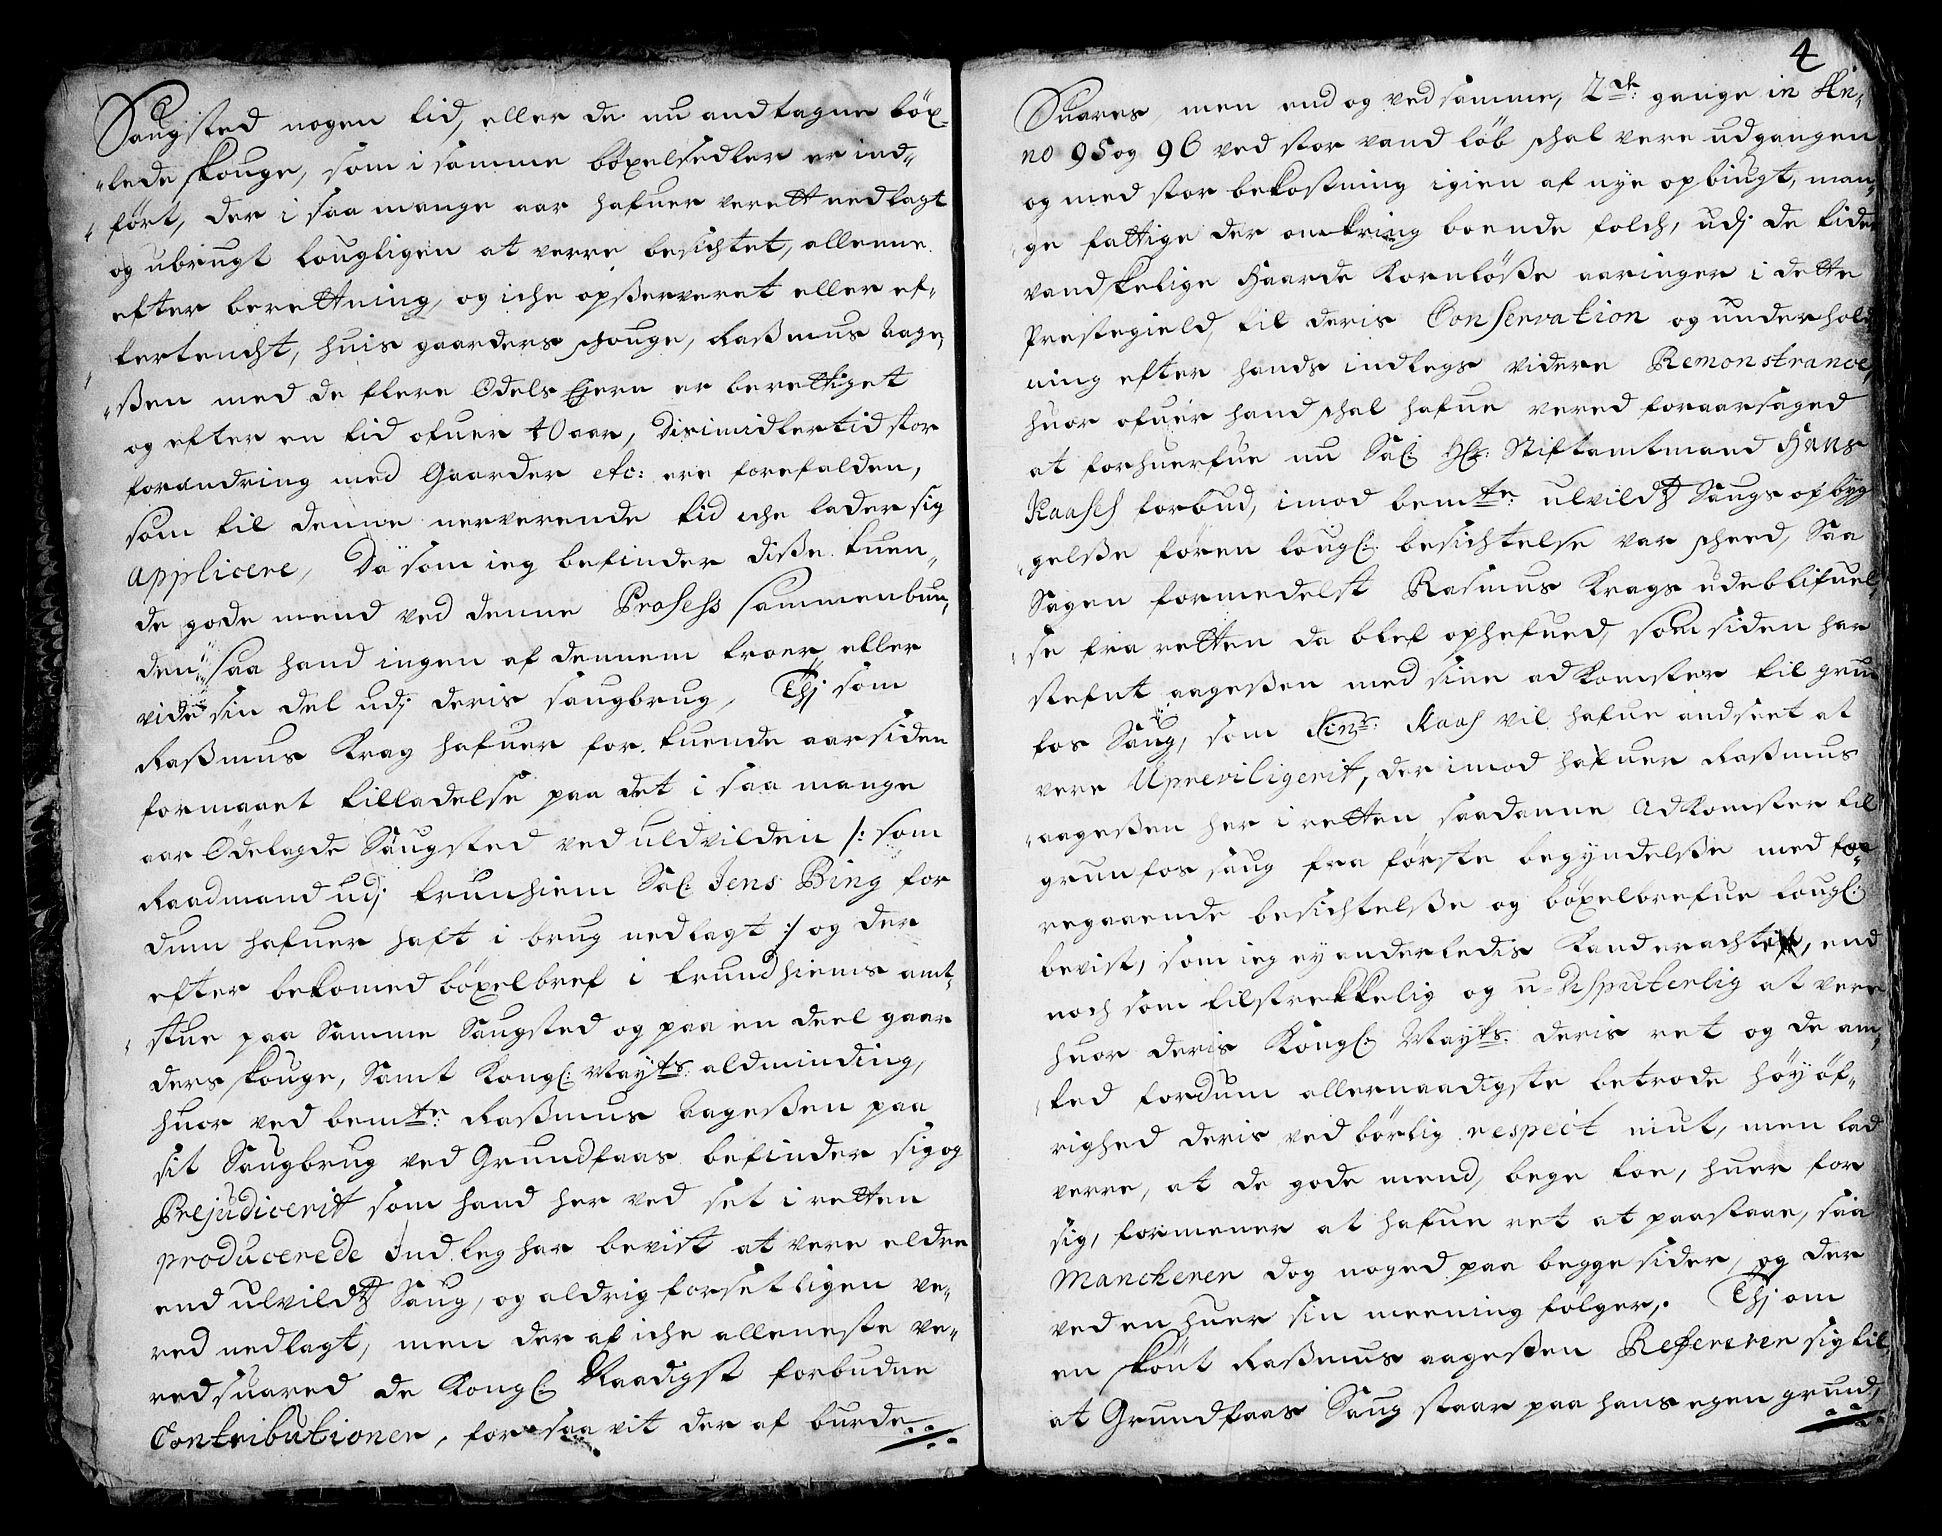 Saugsted nogen tid, eller de nu andtagne böx-
lede skouge, som i samme böxelsedler er ind-
fört, der i saa mange aar hafuer verett nedlagt
og ubrugt lougligen at verre besichtet, alleene
efter berettning, og iche opserveret eller ef-
tertencht, huis gaarders schouge, Rasmus Aage-
ssen med de flere Odels Ejere er berettiget
og efter en tid ofuer 40 aar, Disimidlertid stor
forandring med Gaarder etc: ere forefalden,
som til denne nerverende tid iche lader sig
applicere, Da som ieg befinder disse tuen-
de gode mend ved denne Prosess sammenbun-
den, saa hand ingen af dennem troer eller
vide sin del udj deris saugbrug, Thj som
Rasmus Krag hafuer for tuende aar siden
formaaet tilladelse paa det i saa mange
aar Ödelagde Saugsted ved uldvilden /: som
Raadmand udj Trunhiem Sal: Jens Bing for
dum hafuer haft i brug nedlagt :/ og der
efter bekomed böxelbref i Trundhiems amt-
stue paa Samme Saugsted og paa en deel gaar
ders skouge, Samt Kongl: Mayts: aldminding,
huor ved bemte: Rasmus Aagessen paa
sit Saugbrug ved Grundfaas befinder sig og
Prejudicerit som hand her ved set i retten
producerede Indleg har bevist at vere eldre
end ulvilds Saug, og aldrig forsetligen ve-
red nedlagt, men der af iche alleneste ve-
red suared de Kongl: Naadigst forbudne
Contributioner, for saa vit der af burde
4
Suares, men end og ved samme, 2de: gange in An-
no 95 og 96 ved stor vand löb schal vere udgangen
og med stor bekostning igien af nye opbiugt, man-
ge fattige der omkring boende folch, udj de tider
vandskelige Haarde Kornlösse aaringer i dette
Prestegield, til deris Conservation og underhold
ning efter hands indlegs videre Remonstrance,
huor ofuer hand schal hafue vered foraarsaged
at forhuerfue nu Sal: Hr: Stiftamtmand Hans
Kaases forbud, imod bemte: ulvilds Saugs opbyg
gelsse fören lougl: besichtelse var scheed, Saa
Sagen formedelst Rasmus Krags udeblifuel-
se fra retten da blef ophefued, som siden har
stefnt aagessen med sine adkomster til grun
fos Saug, som Kaas vil hafue andseet at
vere Upreviligerit, der imod hafuer Rasmus
aagessen her i retten saadanne Adkomster til
grunfos saug fra förste begyndelsse med fo-
regaaende besichtelsse og böxelbrefue lougl:
bevist, som ieg ey anderledis Kand eracht, end
noch som tilstrekkelig og u-disputerlig at vere
huor deris Kongl: Mayts: deris ret og de am-
ted fordum allernaadigste betrode höy öf-
righed deris ved börlig respect niut, men lad
verre, at de gode mend, bege toe, huer for
sig, formener at hafue ret at paastaae, saa
Mancherer dog noged paa begge sider, og der
ved en huer sin meening fölger,. Thj om
en skönt Rasmus aagessen Refererer sig til
at Grundfaas Saug staar paa hans egen grund,